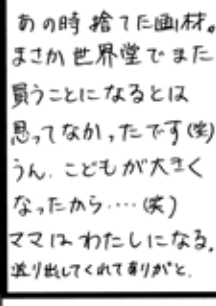 あの時捨てた画材。
まさか世界堂でまた
買うことになるとは
思ってなかったです(笑)
うん、こどもが大きく
なったから‥‥(笑)
ママは わたしになる。
送り出してくれてありがと。